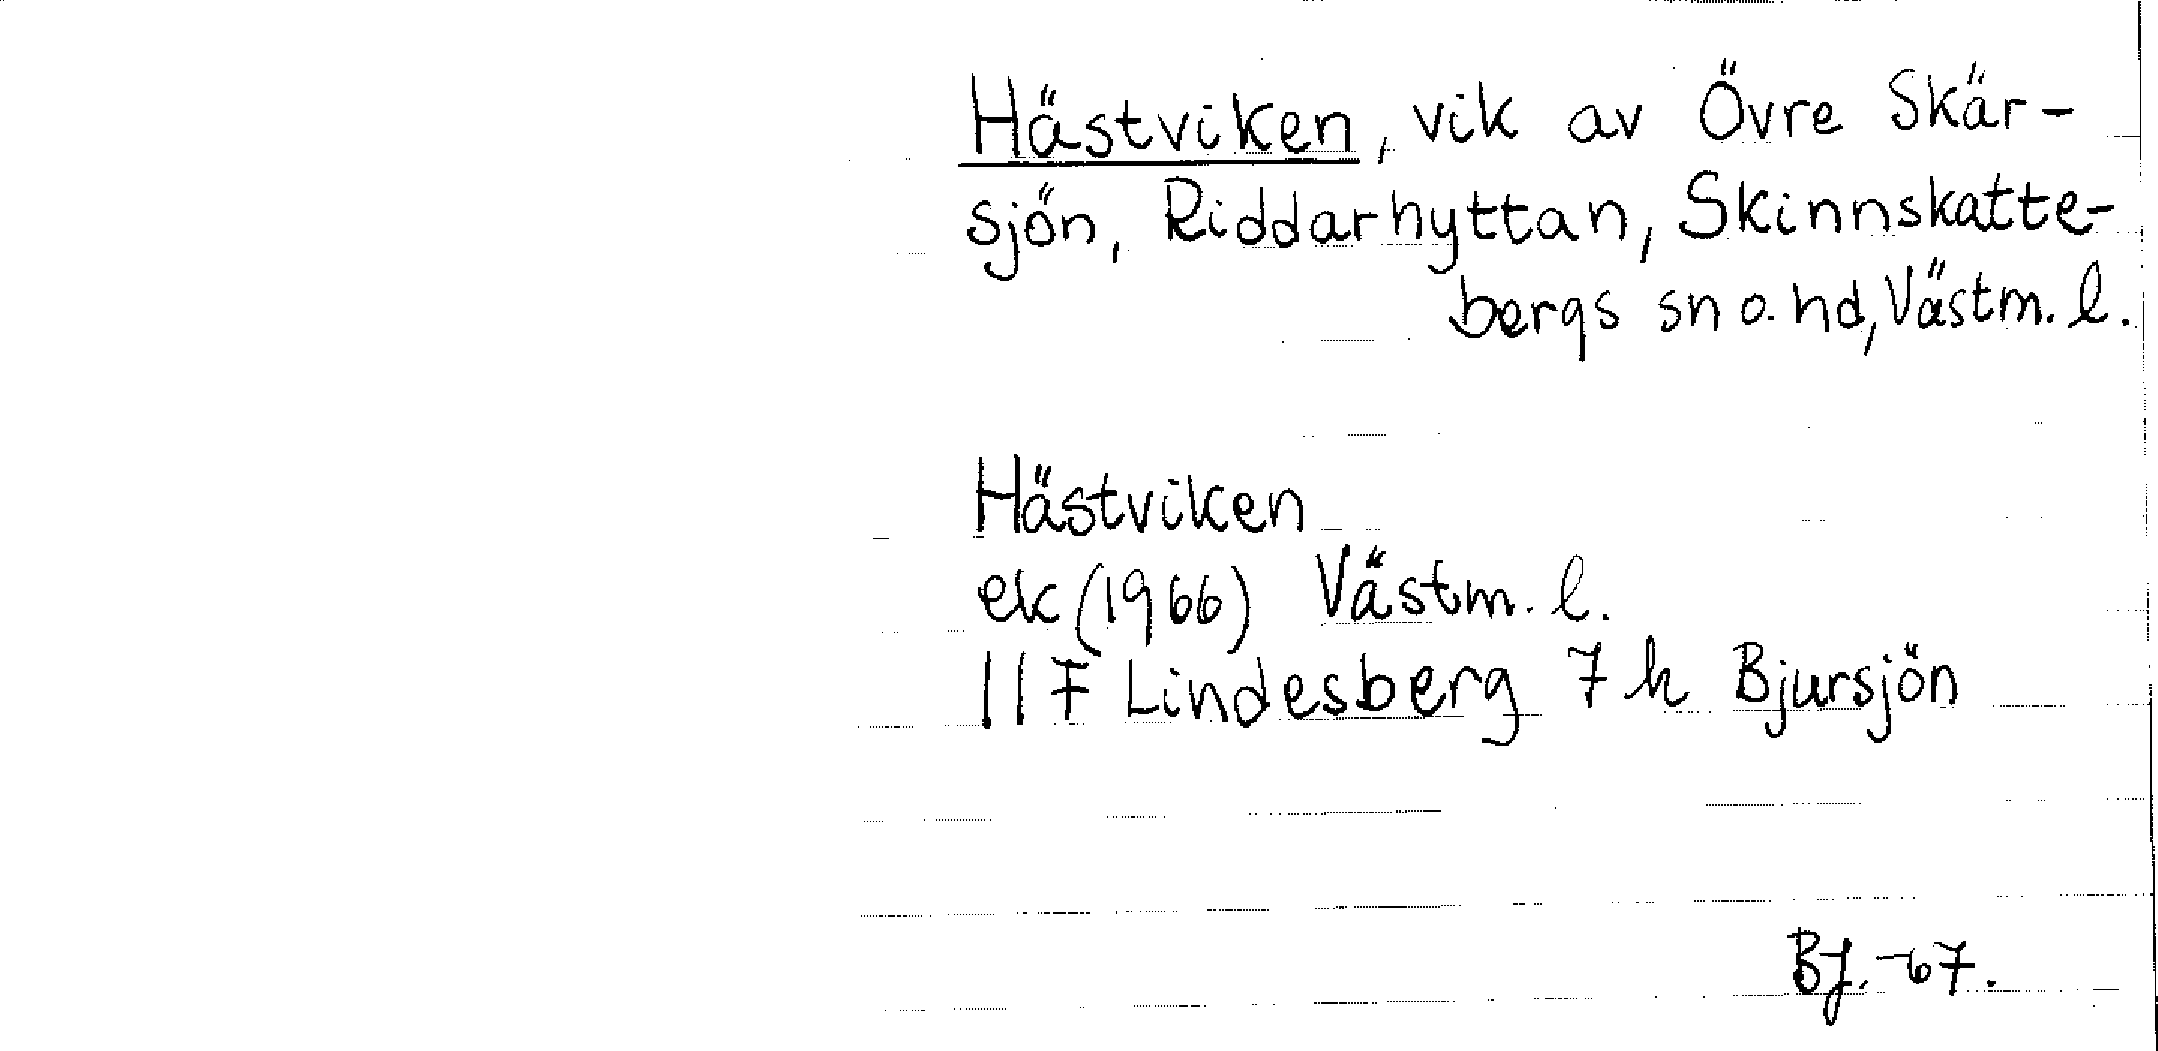 Hästviken, vik av Övre Skär-
sjön, Riddarhyttan, Skinnskatte-
bergs sn o. hd, Västm. l.
Hästviken
ek (1966) Västm. l.
11F Lindesberg 7h Bjursjön
BJ. -67.